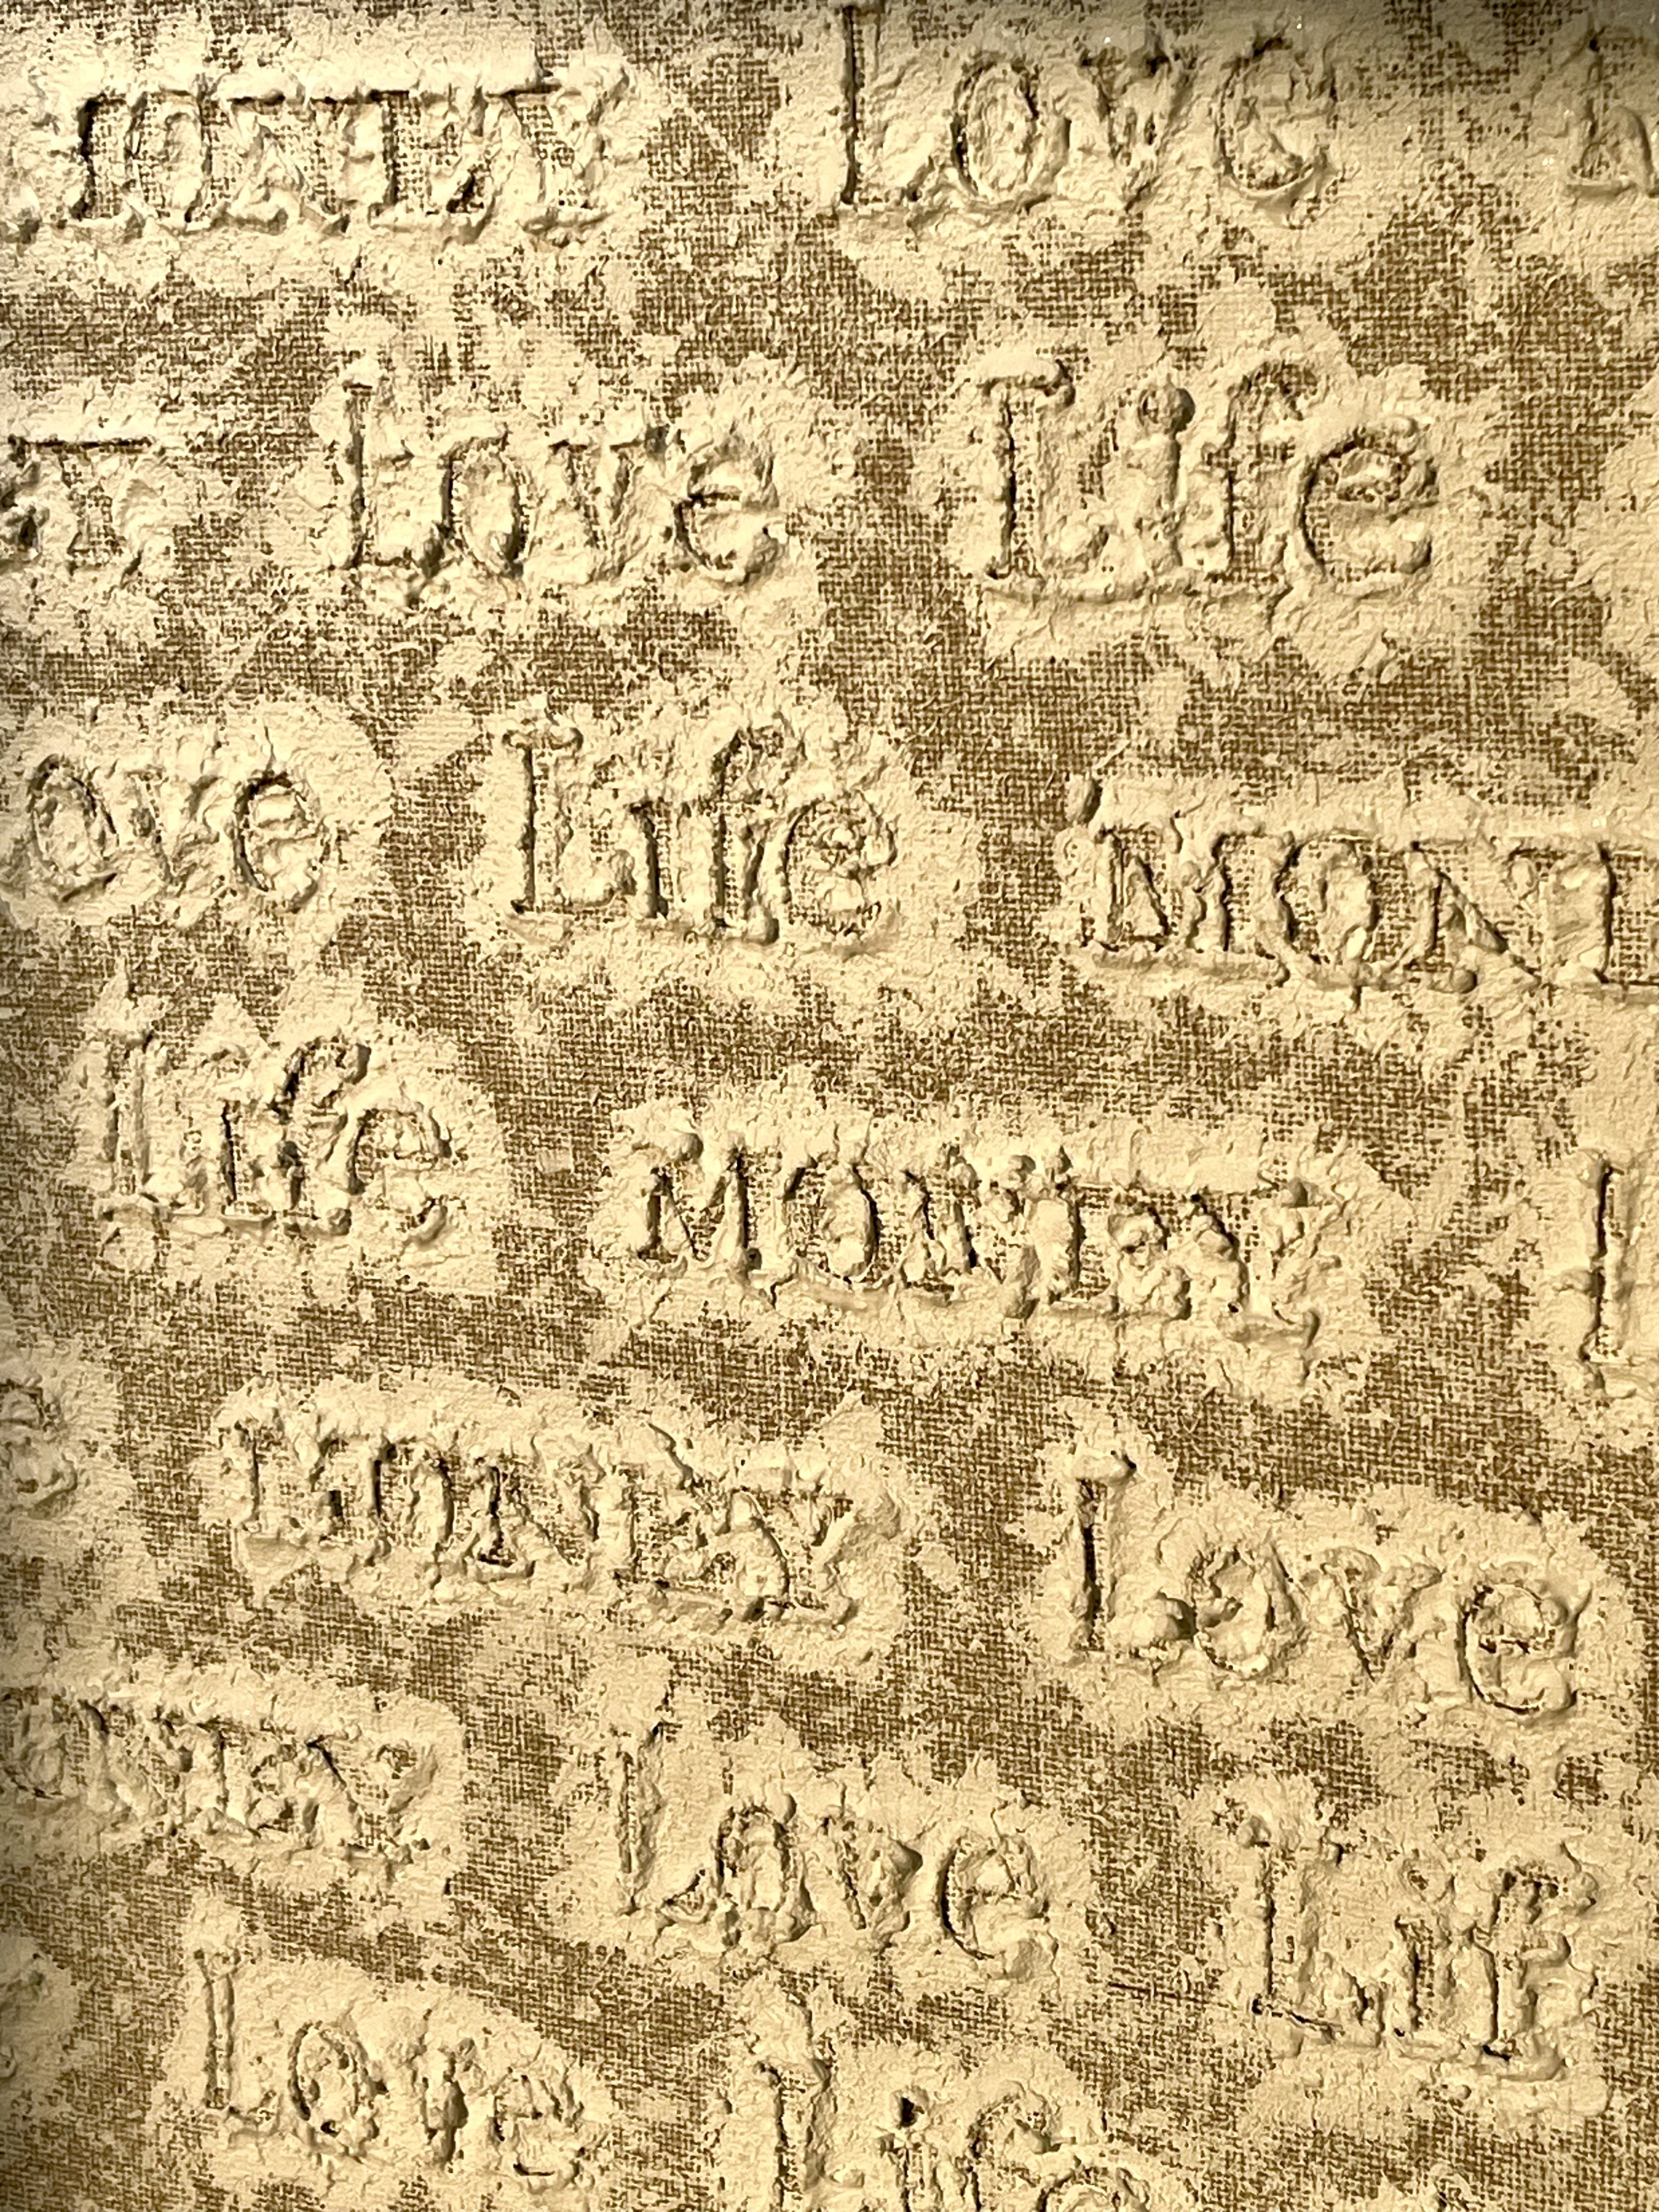 Love
Love Life
ove Life MONE
Life MONEY L
MONEY Love
ONEY Love Lif
Love Life